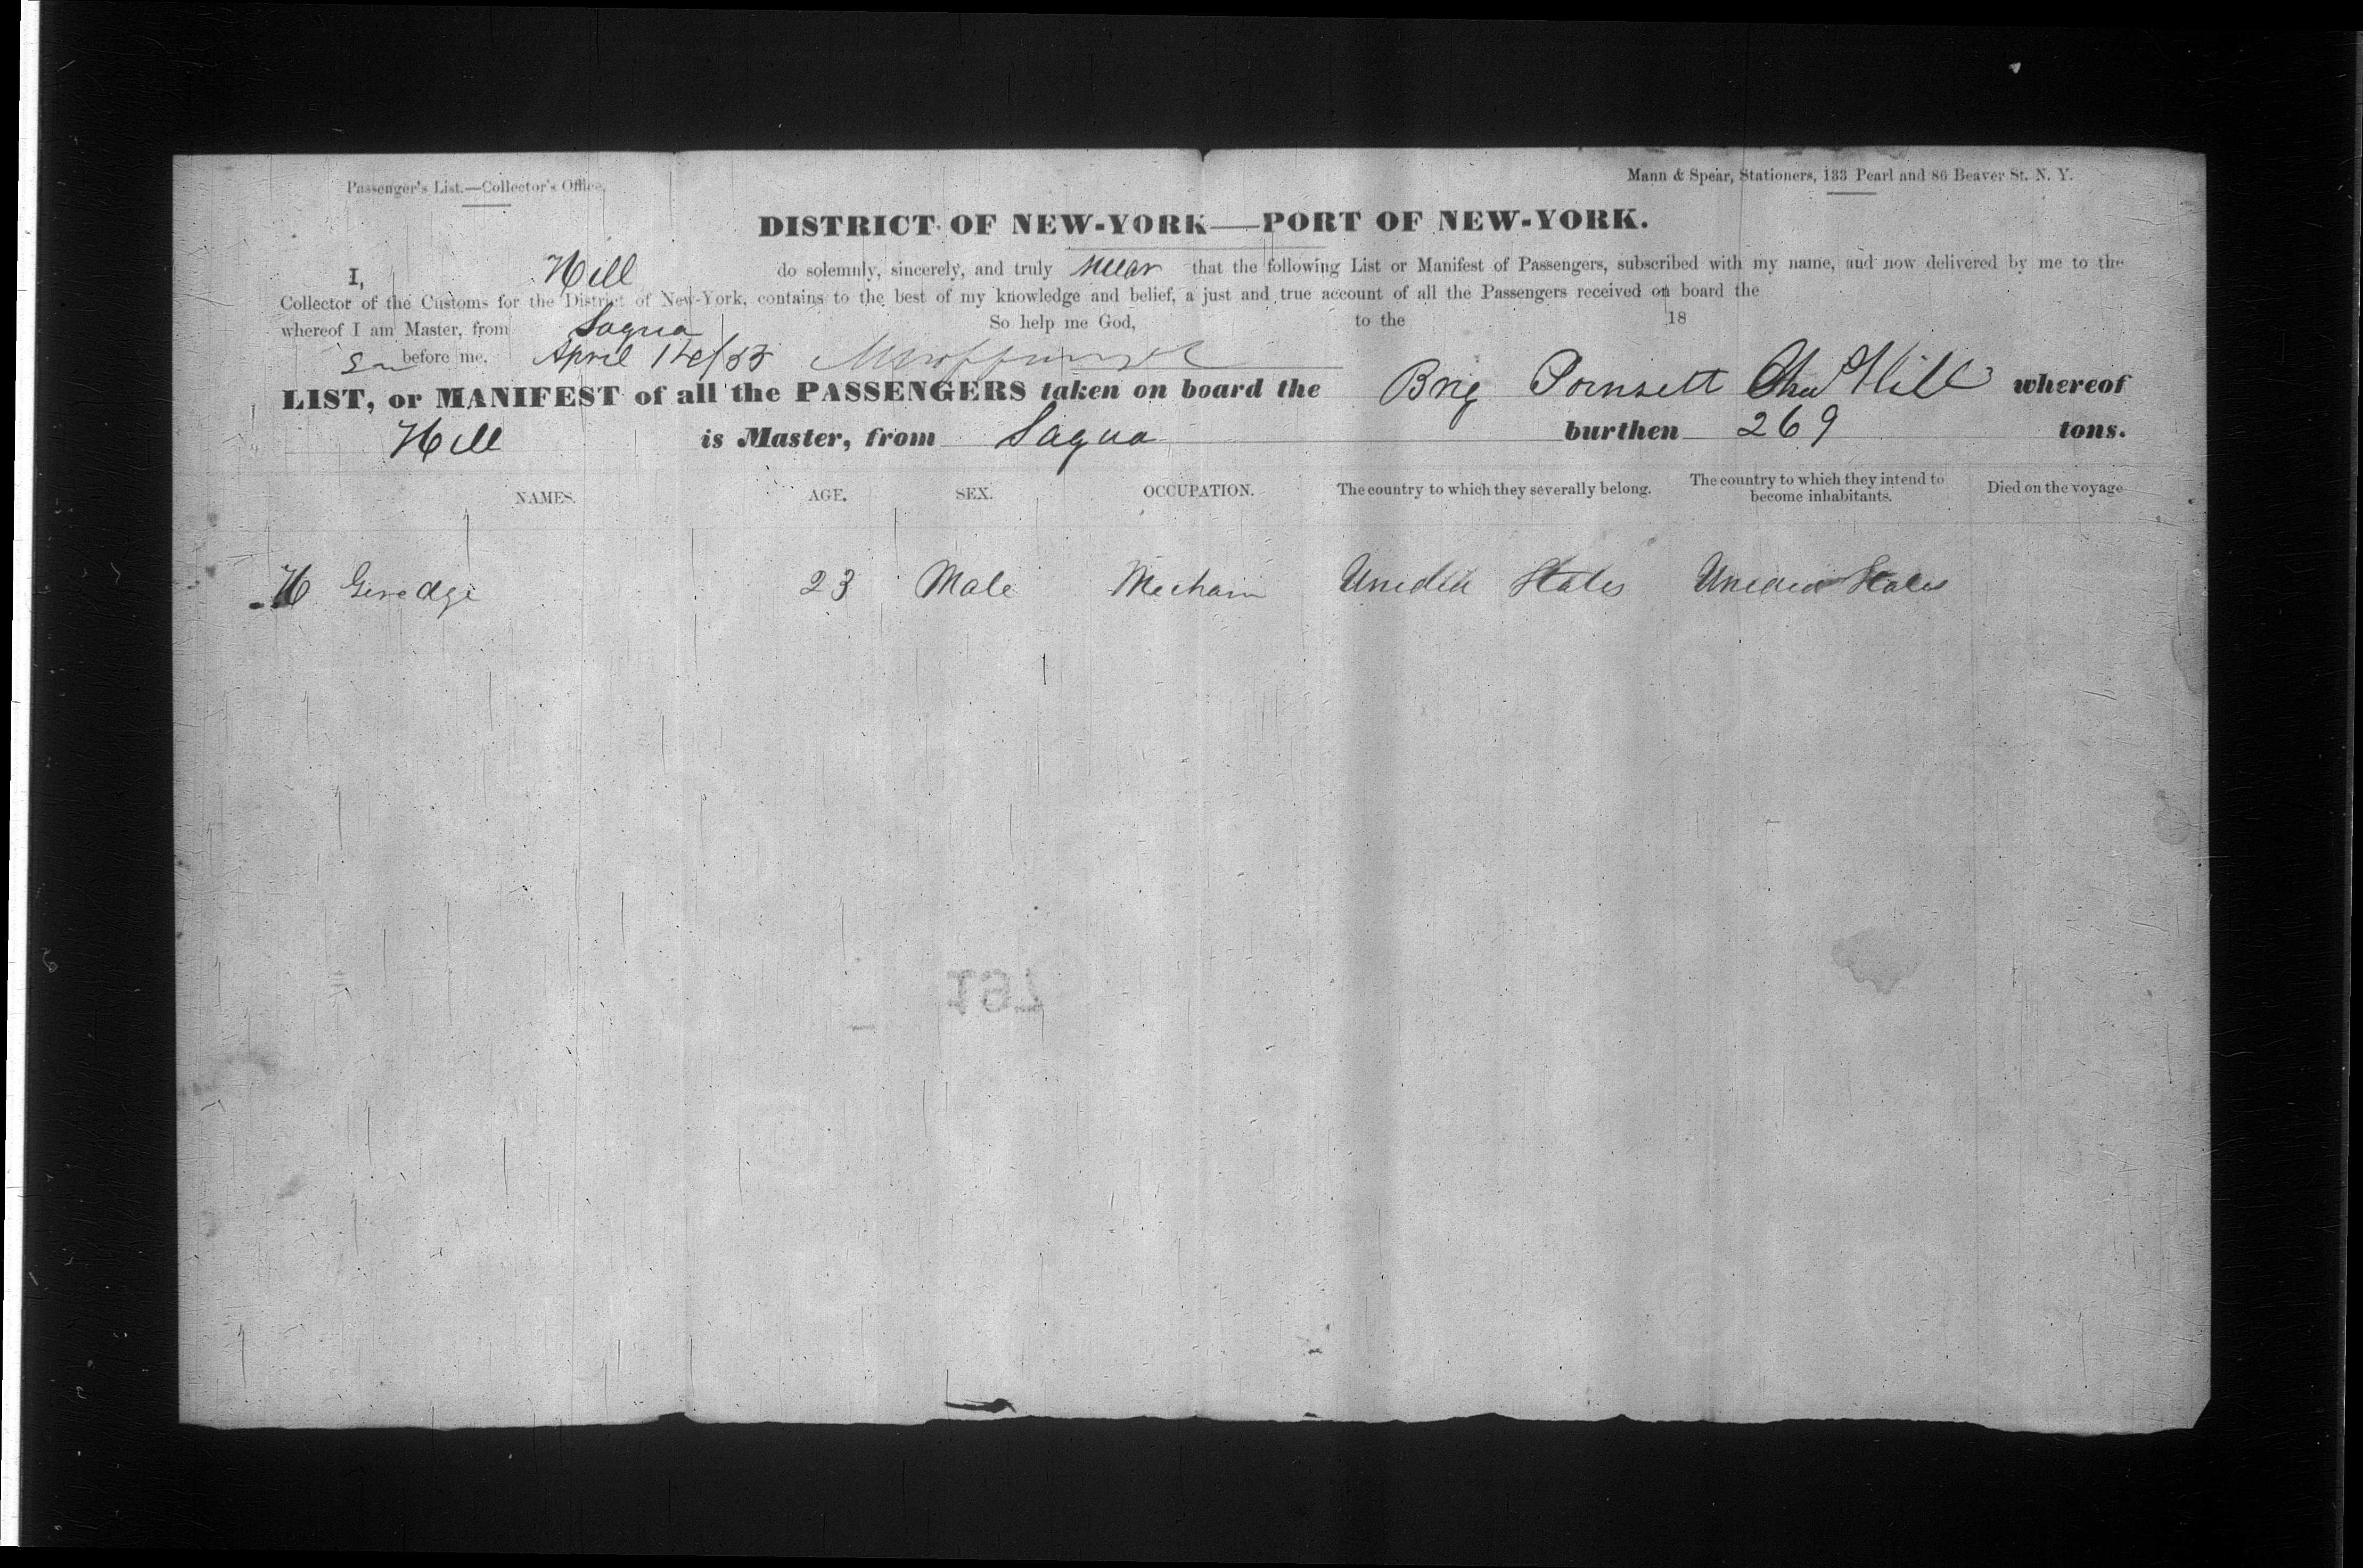 Passenger's List.—Collector's Office.
Mann & Spear, Stationers, 133 Pearl and 86 Beaver St. N. Y.
DISTRICT OF NEW-YORK—PORT OF NEW-YORK.
I, Hill do solemnly, sincerely, and truly swear that the following List or Manifest of Passengers, subscribed with my name, and now delivered by me to the
Collector of the Customs for the District of New-York, contains to the best of my knowledge and belief, a just and true account of all the Passengers received on board the
whereof I am Master, from Sagua So help me God, to the 18
before me, April
LIST, or MANIFEST of all the PASSENGERS taken on board the Brig Poinsett Hill whereof
Hill is Master, from Sagua burthen 269 tons.
NAMES. AGE. SEX. OCCUPATION. The country to which they severally belong. The country to which they intend to become inhabitants. Died on the voyage
H 23 Male United States United States
197